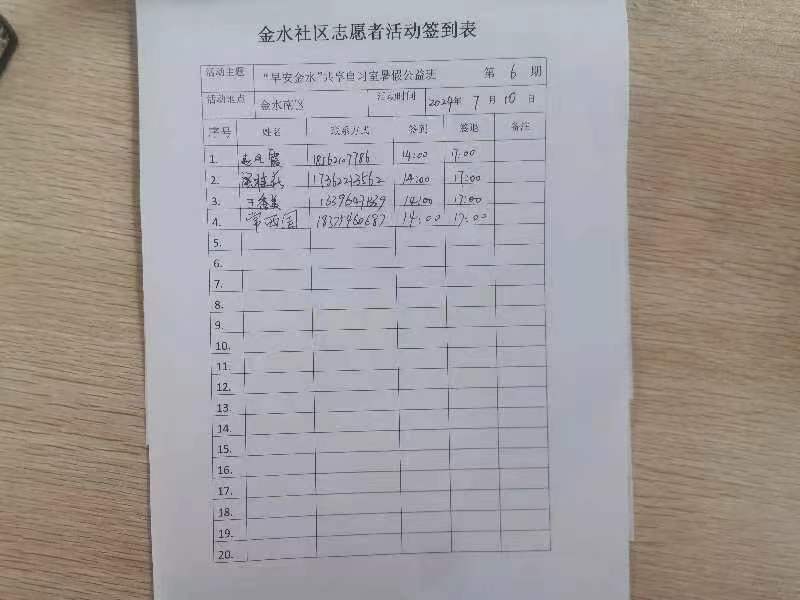 金水社区志愿者活动签到表
活动主题 “早安金水”共享自习室暑假公益班 第 6 期
活动地点 金水南区 活动时间 2024年 7 月 10 日
序号 姓名 联系方式 签到 签退 备注
1. 14:00 17:00
2. 17362243562 14:00 17:00
3. 14:00 17:00
4. 常西国 18371460687 14:00 17:00
5.
6.
7.
8.
9.
10.
11.
12.
13.
14.
15.
16.
17.
18.
19.
20.